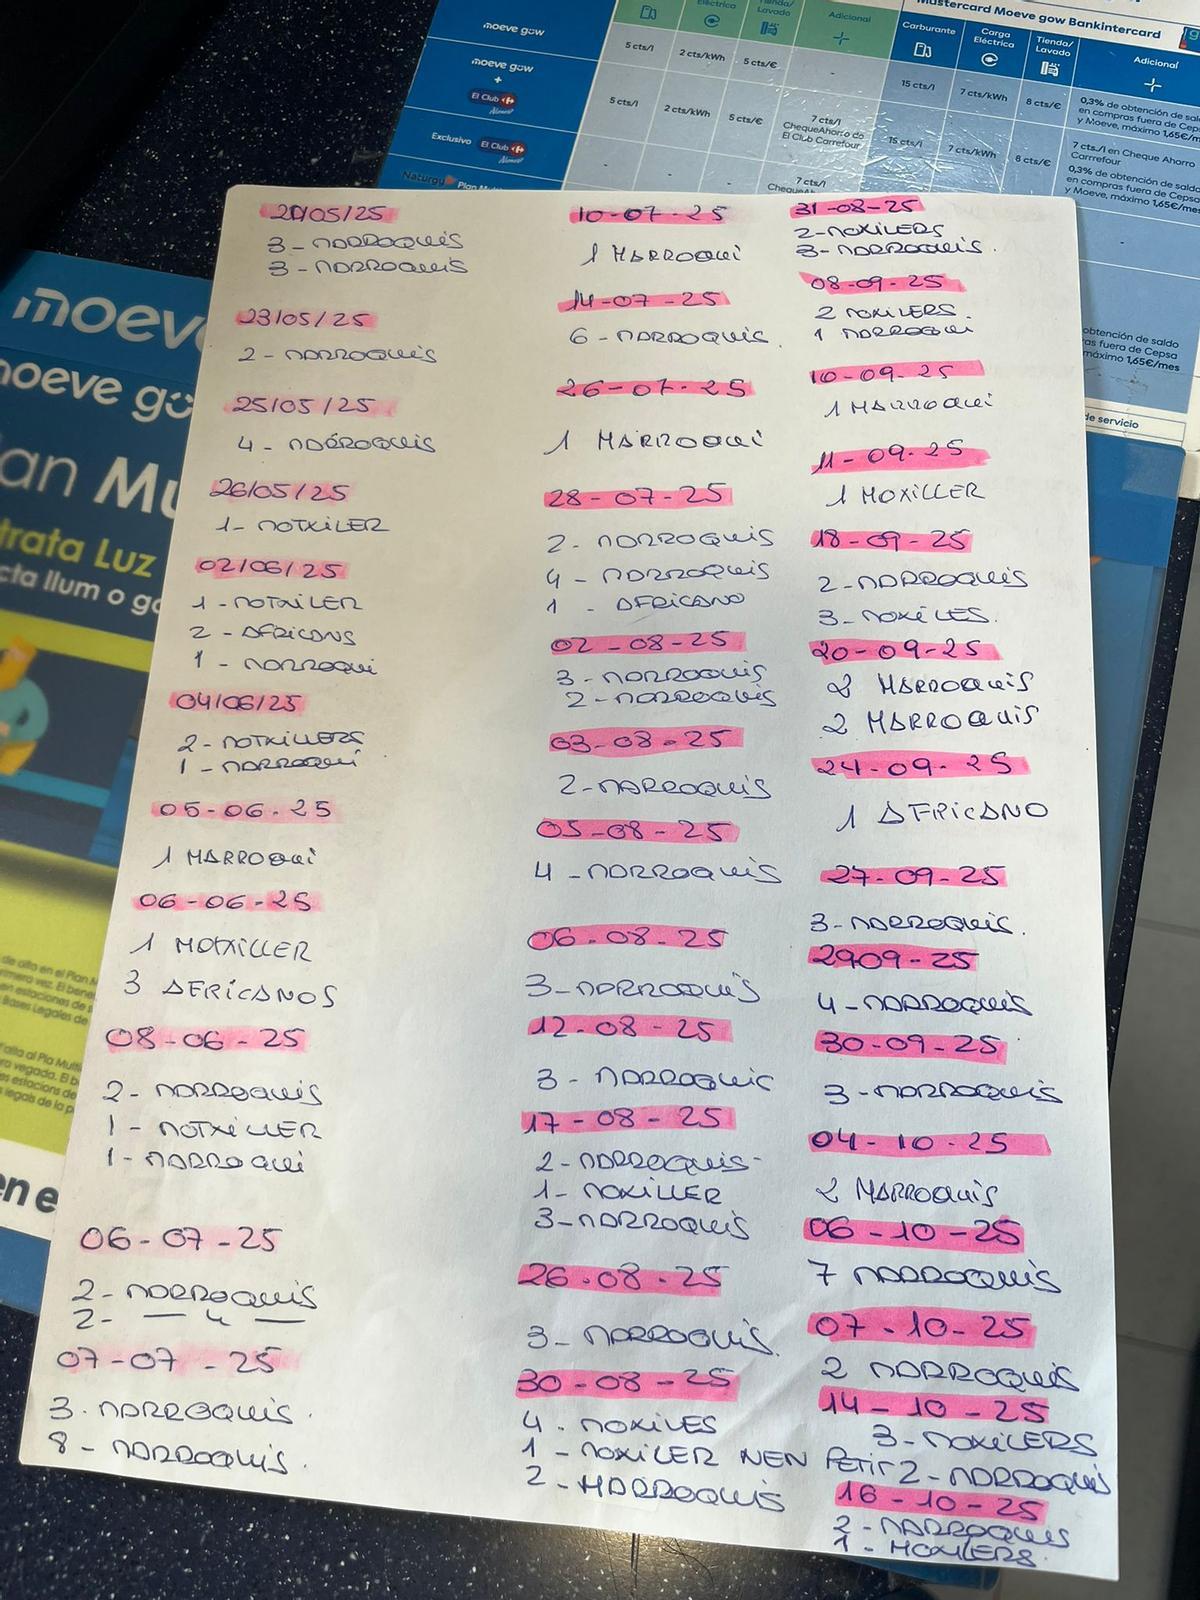 moeve gow
Eléctrica
Tienda/
Lavado
Adicional
Mastercard Moeve gow Bankintercard
Carburante
Carga
Eléctrica
Tienda/
Lavado
Adicional
moeve gow
+
El Club
5 cts/l
2 cts/kWh
5 cts/€
-
15 cts/l
7 cts/kWh
8 cts/€
0,3% de obtención de saldo
en compras fuera de Cepsa
y Moeve, máximo 1,65€/mes
Exclusivo El Club
5 cts/l
2 cts/kWh
5 cts/€
7 cts/l
ChequeAhorro de
El Club Carrefour
15 cts/l
7 cts/kWh
8 cts/€
7 cts./l en Cheque Ahorro
Carrrefour
0,3% de obtención de saldo
en compras fuera de Cepsa
y Moeve, máximo 1,65€/mes
Naturgy
7 cts/l
obtención de saldo
as fuera de Cepsa
máximo 1,65€/mes
de servicio
moeve
moeve gow
an Mu
trata Luz
cta llum o ga
en e
23/05/25
3 - MARROQUIS
3 - MARROQUIS
2 - MARROQUIS
25/05/25
4 - MARROQUIS
26/05/25
1 - MOTXILER
02/06/25
1 - MOTXILER
2 - AFRICANS
1 - MARROQUI
04/06/25
2 - MOTXILLERS
1 - MARROQUI
05-06-25
1 MARROQUI
06-06-25
1 MOTXILLER
3 AFRICANOS
08-06-25
2 - MARROQUIS
1 - MOTXILLER
1 - MARROQUI
06-07-25
2 - MARROQUIS
2 - — 4 —
07-07-25
3 - MARROQUIS.
8 - MARROQUIS.
10-07-25
1 MARROQUI
14-07-25
6 - MARROQUIS.
26-07-25
1 MARROQUI
28-07-25
2 - MARROQUIS
4 - MARROQUIS
1 - AFRICANO
02-08-25
3 - MARROQUIS
2 - MARROQUIS
03-08-25
2 - MARROQUIS
05-08-25
4 - MARROQUIS
06-08-25
3 - MARROQUIS
12-08-25
3 - MARROQUIS
17-08-25
2 - MARROQUIS -
1 - MOXILLER
3 - MARROQUIS
26-08-25
3 - MARROQUIS.
30-08-25
4 - MOXILES
1 - MOXILER NEN PETIT
2 - MARROQUIS
31-08-25
2 - MOXILERS
3 - MARROQUIS.
08-09-25
2 MOXILERS.
1 MARROQUI
10-09-25
1 MARROQUI
11-09-25
1 MOXILLER
18-09-25
2 - MARROQUIS
3 - MOXILES.
20-09-25
2 MARROQUIS
2 MARROQUIS
24-09-25
1 AFRICANO
27-09-25
3 - MARROQUIS.
2909-25
4 - MARROQUIS
30-09-25
3 - MARROQUIS
04-10-25
2 MARROQUIS
06-10-25
7 MARROQUIS
07-10-25
2 MARROQUIS
14-10-25
3 - MOXILERS
2 - MARROQUIS
16-10-25
2 - MARROQUIS
1 - MOXILERS.